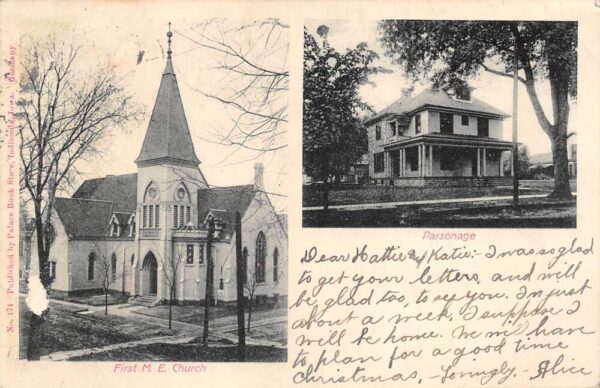 No. 174 Published by Palace Book Store, Indianola, Iowa Germany
First M. E. Church
Parsonage
Dear Hattie & Katie:- I was so glad
to get your letters, and will
be glad too, to see you. In just
about a week, I suppose I
will be home. We will have
to plan for a good time
Christmas,- Lovingly- Alice